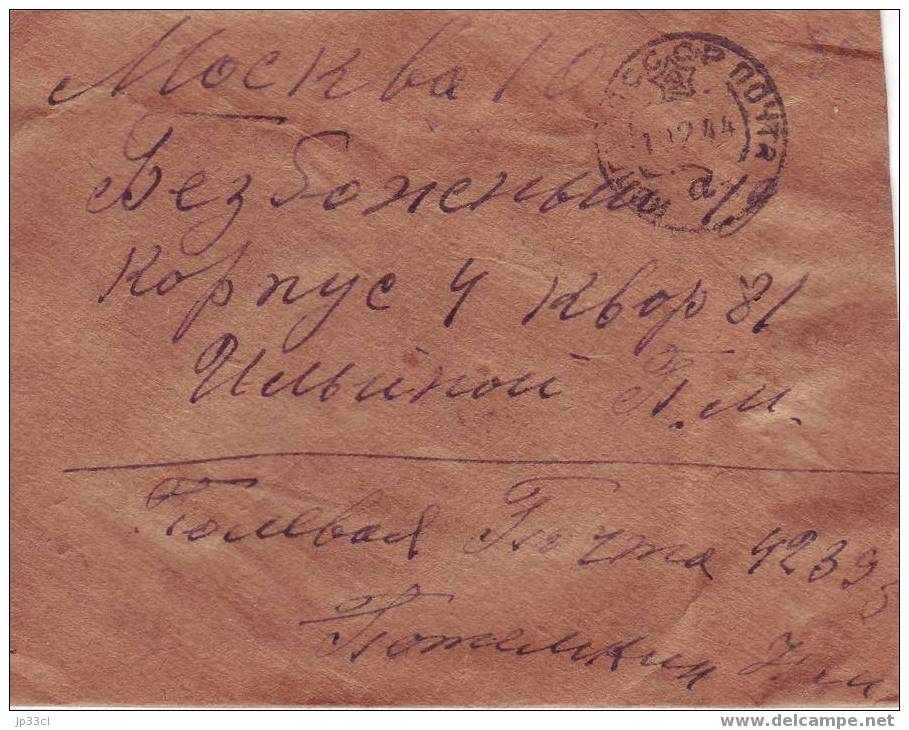 Москва 10
СССР ПОЧТА
1 12 44
а
Безбоженый 19
Корпус 4 Квор 81
Ильиной П.М.
Полевая Почта 42393
Потемкин
jp33cl
www.delcampe.net